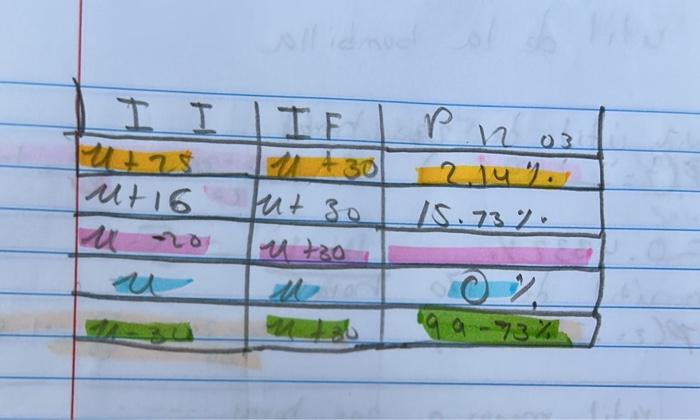 I I I F P. n 03
u + 2s u + 30 2.14 %.
u+16 u+ 30 15.73 %.
u -20 u +30
u u 0 %
u - 30 u + 30 99-73%